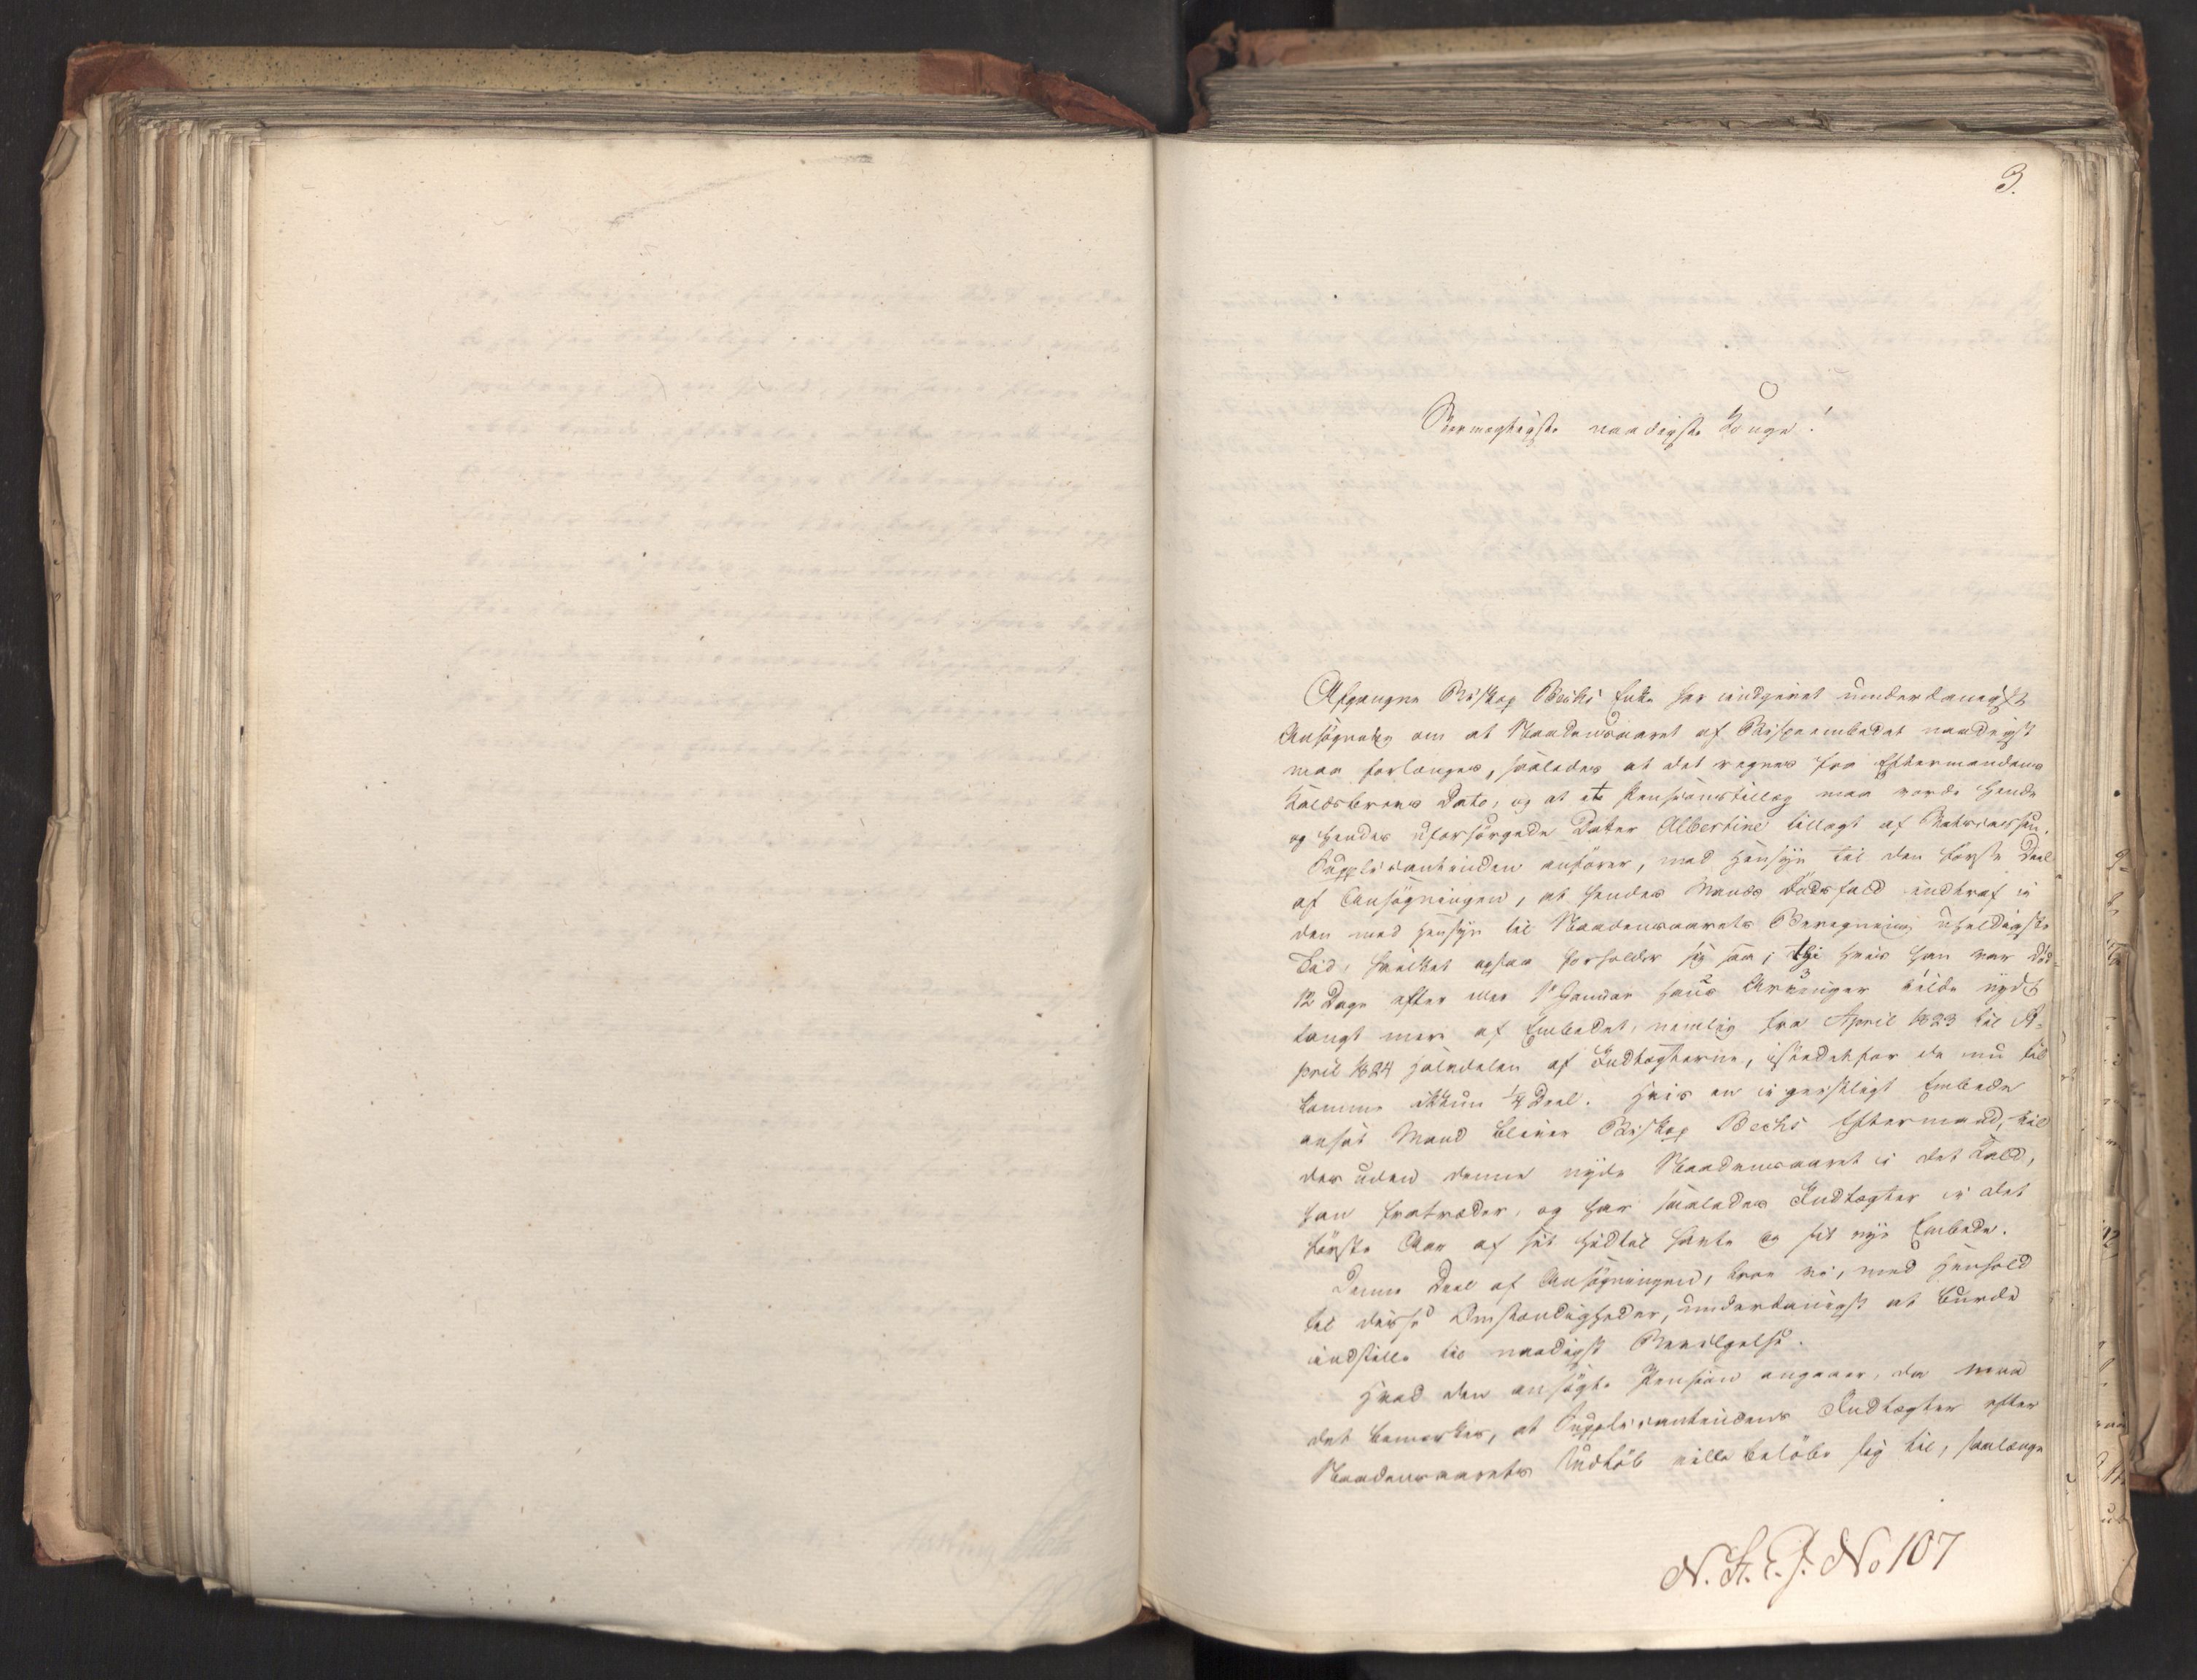 3.
Stormægtigste naadigste Konge!
Afgangne Biskop Bechs Enke har indgivet underdanigst
Ansøgning om at Naadensaaret af Bispeembedet naadigst
maa forlænges, saaledes at det regnes fra Eftermandens
Kaldsbrevs Dato, og at et Pensionstillæg maa vorde hende
og hendes uforsørgede Datter Albertine tillagt af Statscassen.
Supplicantinden anfører, med Hensyn til den første Deel
af Ansøgningen, at hendes Mands Dødsfald indtraf i
den med Hensyn til Naadensaarets Beregning uheldigste
Tid, hvilket ogsaa forholder sig saa; thi hvis han var død
12 Dage efter eller 1 Januar havde Arvinger vilde nydt
langt mere af Embedet, nemlig fra April 1823 til A-
pril 1824 Halvdelen af Indtægterne, istedetfor de nu til
komme ikkun 1/4 Deel. Hvis en i geistligt Embede
ansat Mand bliver Biskop Bechs Eftermand, vil
desuden denne nyde Naadensaaret i det Kald,
han fratræder, og har saaledes Indtægter i det
første Aar af sit hidtil havte og sit nye Embede.
Denne Deel af Ansøgningen, troe vi, med Henhold
til disse Omstændigheder, underdanigst at burde
indstille til naadigst Bevilgelse.
Hvad den ansøgte Pension angaaer, da maa
det bemærkes, at Supplicantindens Indtægter efter
Naadensaarets Udløb ville beløbe sig til, saalænge
N. St. C. J. No 107